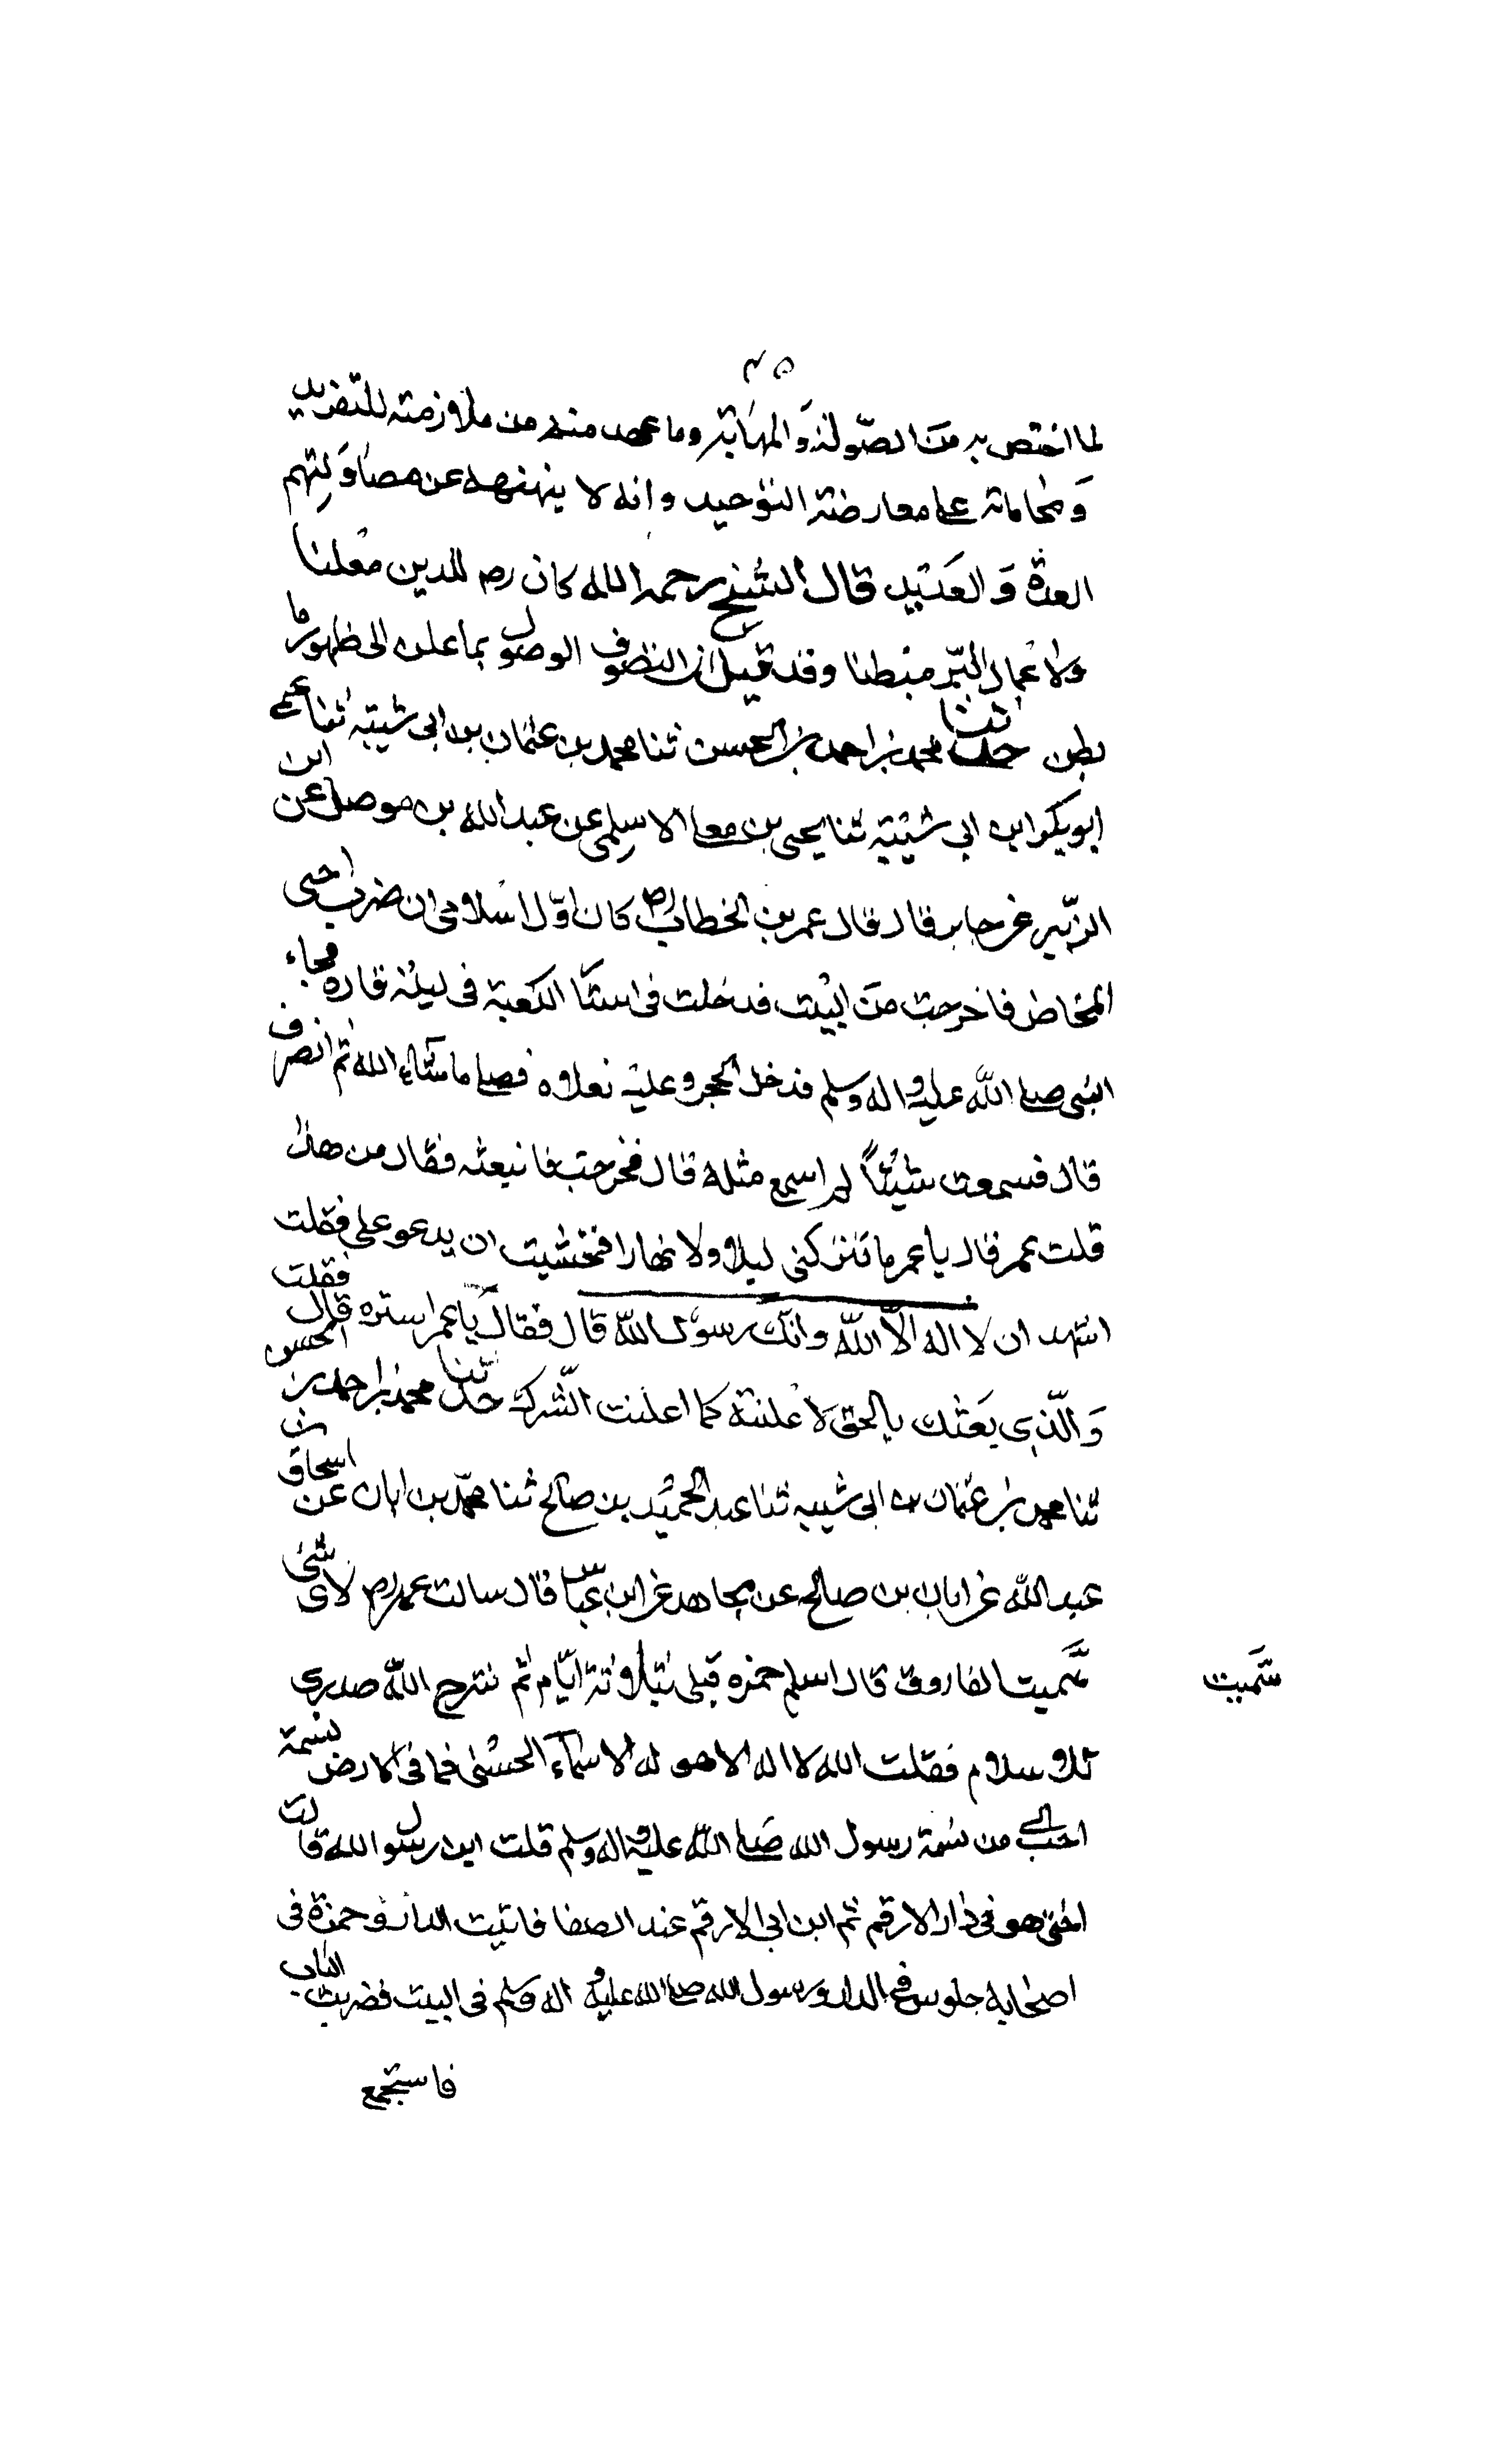 ٤٥
لما اختص به من الصّولة وَالمهَابة وما عهد منه من ملازمته للتفريد
وَمحاماته على معارضة التوحيد وانه لا ينهنهه عن مصَاوَلتهم
العدة وَالعَديد قال الشيخ رحمه الله كان رض للدين معلنا
ولاعمال البرّ مبطنا وقد قيل ان التصوف الوصول بما علن الى ظهور ما
بطن حدثنا محمد بن احمد بن الحسن ثنا محمد بن عثمان بن ابى شيبة ثنا عمى
ابو بكر ابن ابي شيبة ثنا يحيى بن معلى الاسلمى عن عبد الله بن موصل عن ابن
الزبير عن جابر قال قال عمر بن الخطاب رض كان اوّل اسلامى ان ضرب اختى
المخاض فاخرجت من البيت فدخلت فى استَا الكعبة فى ليلة قارة فجاء
النبى صلى الله عليه واله وسلم فدخل الحجر وعليه نعلاه فصلى ما شاء الله ثم انصرف
قال فسمعت شيئاً لم اسمع مثله قال فخرجت فاتبعته فقال من هذا
قلت عمر قال يا عمر ما تتركنى ليلا ولا نهارا فخشيت ان يدعو على فقلت
اشهد ان لا اله الّا الله وانك رسول الله قال فقال يا عمر استره قال فقلت
وَالّذى بعثك بالحق لاعلنته كما اعلنت الشّرك حدثنا محمد بن احمد بن الحسن
ثنا محمد بن عثمان بن ابى شيبه ثنا عبد الحميد بن صالح ثنا محمّد بن ابان عن اسحاق بن
عبد الله عن ابان بن صالح عن مجاهد عن ابن عباس قال سالت عمر رض لاى شئ
سَّميت الفاروق قال اسلم حمزه قبلى بثلاثة ايّام ثم شرح الله صدرى
سَّميت
للاسلام فقلت الله لا اله الا هو له الاسماء الحسنى فما فى الارض نسمة
احب الى من نسمة رسول الله صلى الله عليه واله وسلم قلت اين رسول الله قالت
اختى هو فى دار الارقم ثم ابن ابى الارقم عند الصفا فاتيت الدار وحمزة فى
اصحابه جلوس فى الدار ورسول الله صلى الله عليه و اله وسلم فى البيت فضربت الباب
فاستجمع